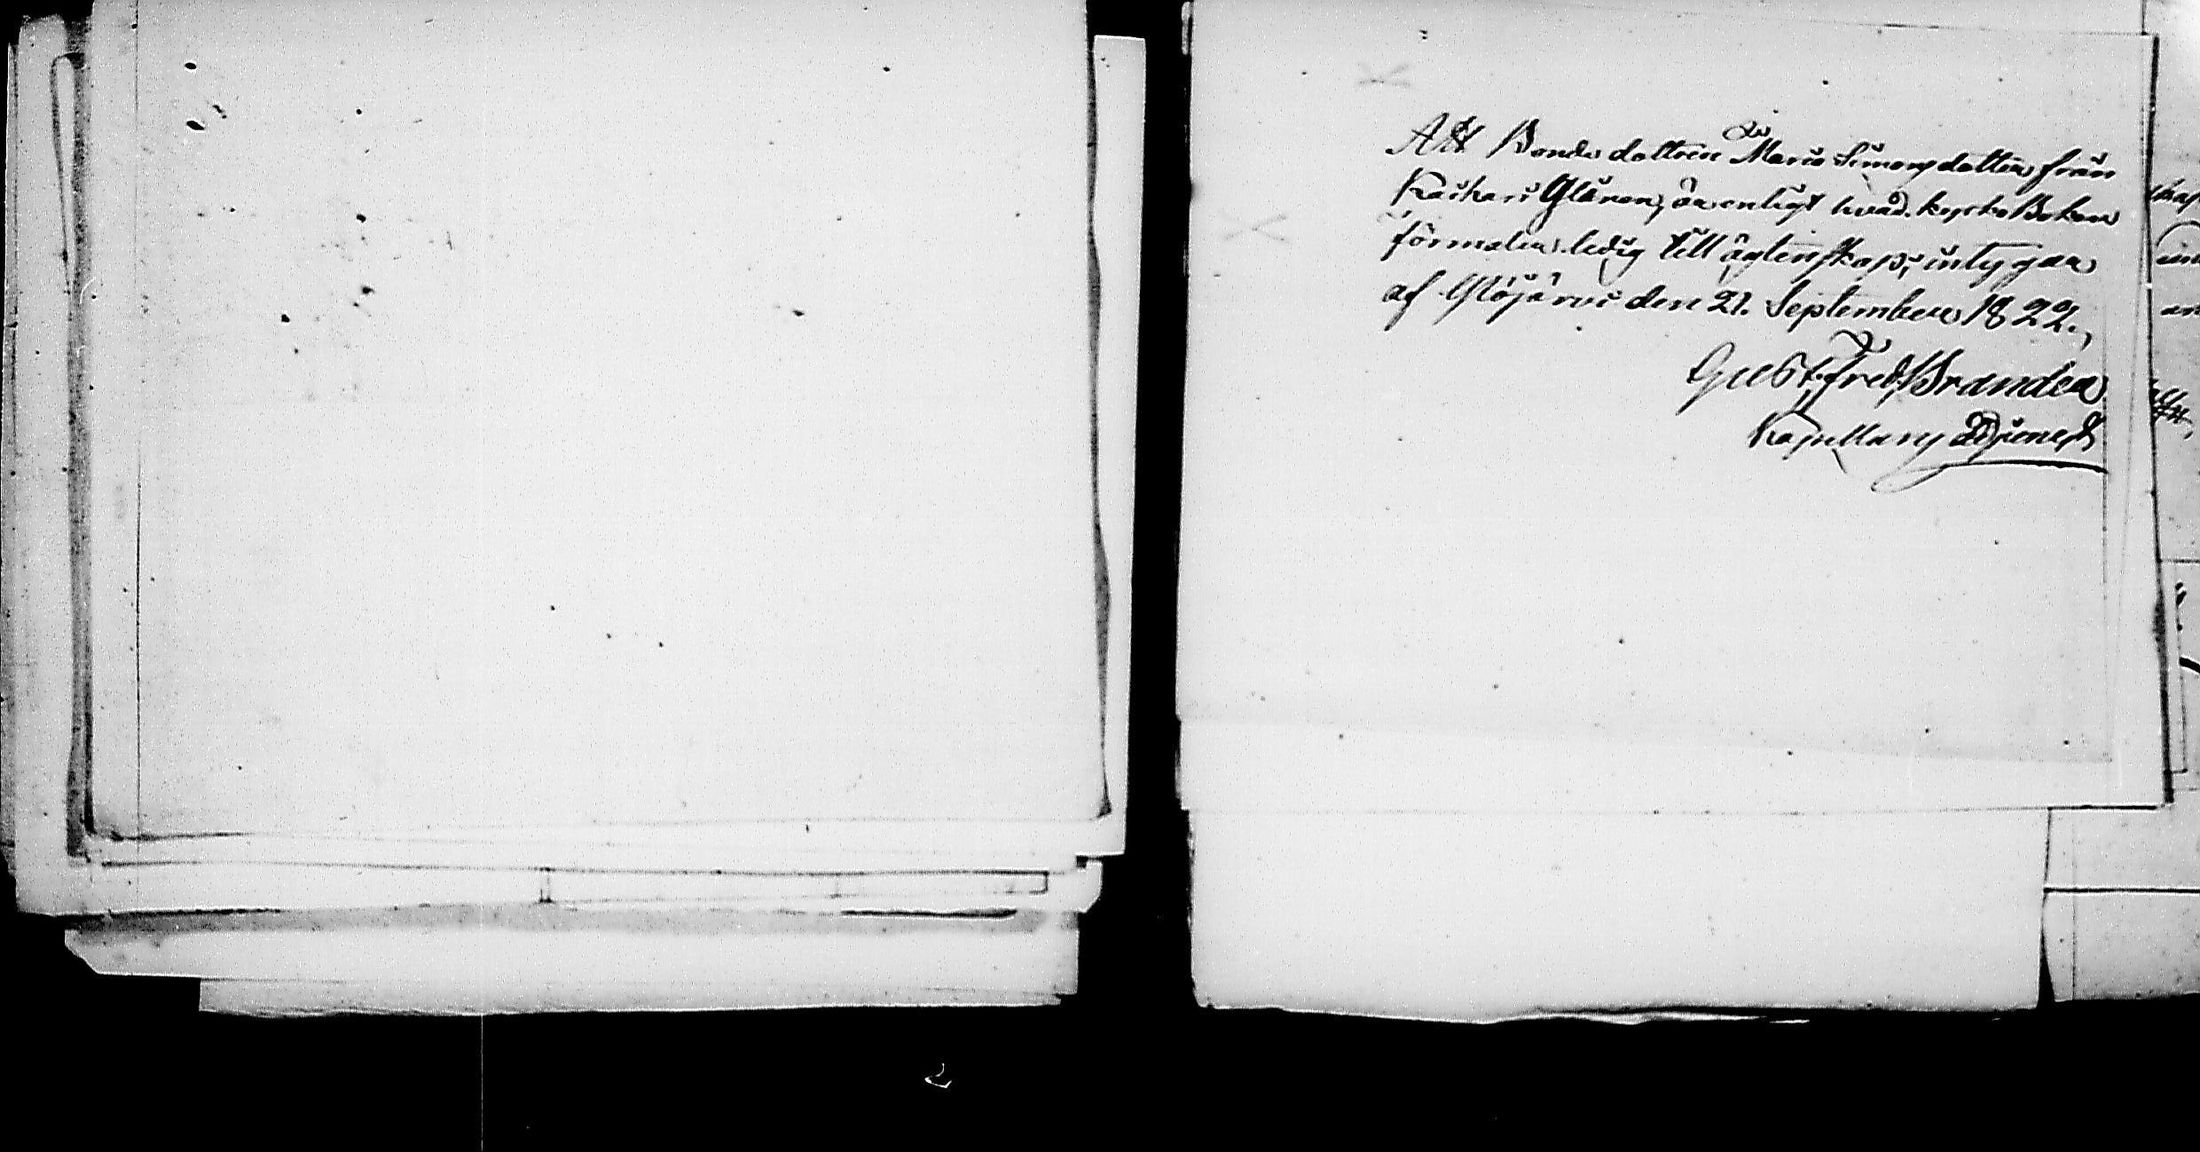 Att Bonde dottren Maria Simonsdotter från
Kaihari Ylänen, är enligt hvad kyrko Boken
förmäler ledig till ägtenskap, intygar
af Ylöjärvi den 21. September 1822.
Gust. Fred. Brander
Kapellans Adjunct